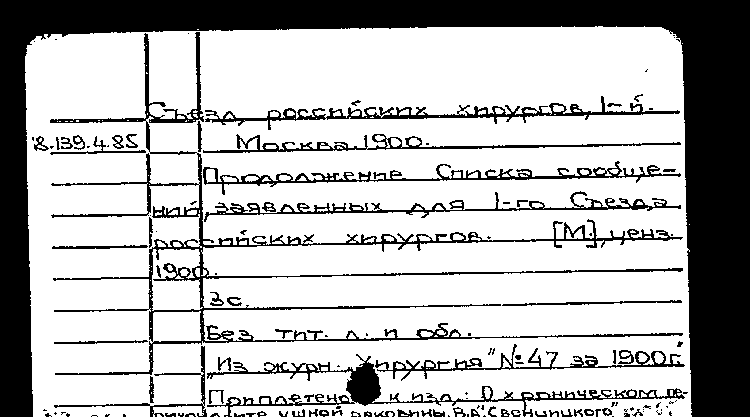 Съезд российских хирургов, 1-й.
8.139.4.85 Москва. 1900.
Продолжение Списка сообще-
ний, заявленных для 1-го Съезда
российских хирургов. [М.], ценз.
1900.
3с.
Без тит. л. и обл.
"Из журн. "Хирургия" №47 за 1900г."
Приплетено к изд.: О хроническом пе-
рихондрите ушной раковины. В.А.